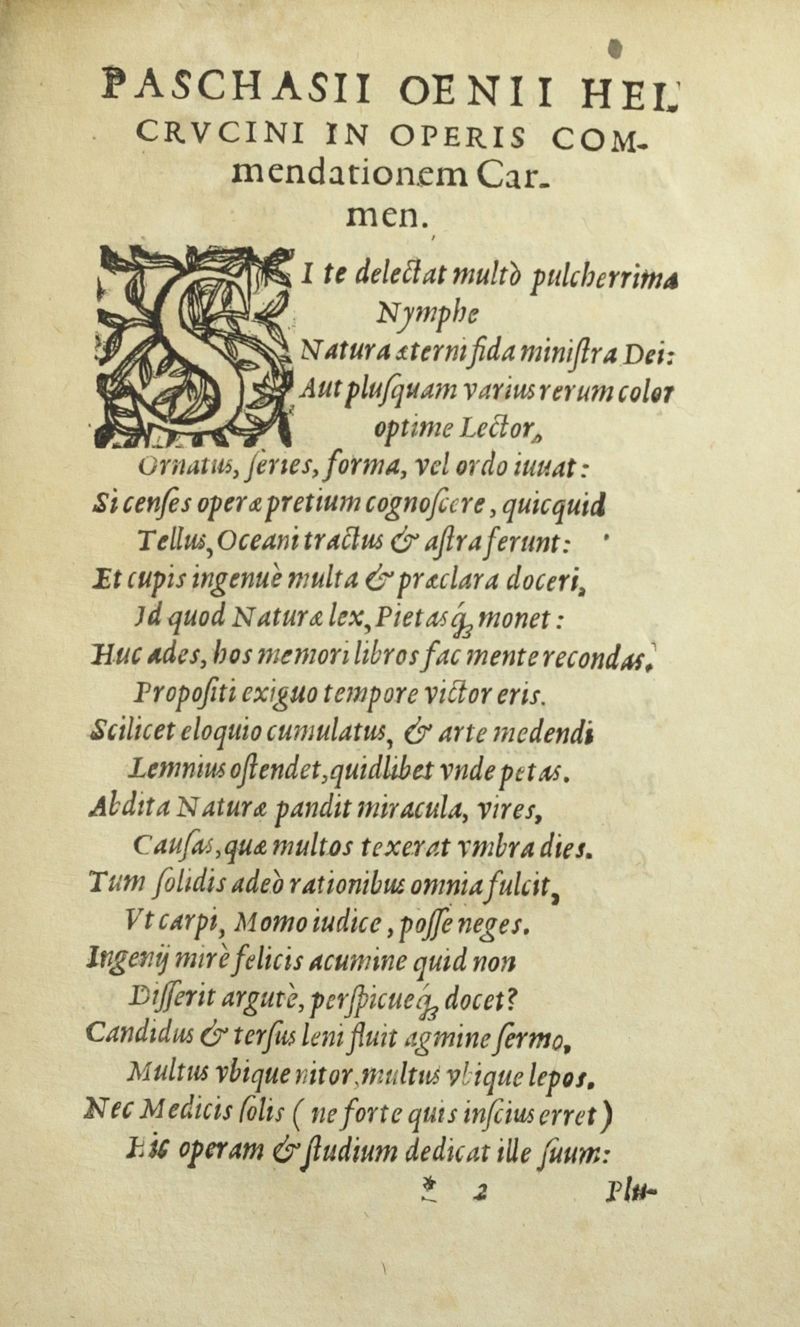 PASCHASII OENII HEL
CRVCINI IN OPERIS COM-
mendationem Car-
men.
SI te delectat multò pulcherrima
Nymphe
Natura æterni fida miniſtra Dei:
Aut pluſquam varius rerum color
optime Lector,
Ornatus, ſeries, forma, vel ordo iuuat:
Si cenſes operæpretium cognoſcere, quicquid
Tellus, Oceani tractus & aſtra ferunt:
Et cupis ingenuè multa & præclara doceri,
Id quod Naturæ lex, Pietasq́ꝫ monet:
Huc ades, hos memori libros fac mente recondas,
Propoſiti exiguo tempore victor eris.
Scilicet eloquio cumulatus, & arte medendi
Lemnius oſtendet, quidlibet vnde petas.
Abdita Naturæ pandit miracula, vires,
Cauſas, quæ multos texerat vmbra dies.
Tum ſolidis adeò rationibus omnia fulcit,
Vt carpi, Momo iudice, poſſe neges.
Ingenij mirè felicis acumine quid non
Diſſerit argutè, perſpicueq́ꝫ docet?
Candidus & terſus leni fluit agmine ſermo,
Multus vbique nitor, multus vbique lepos.
Nec Medicis ſolis (ne forte quis inſcius erret)
Hic operam & ſtudium dedicat ille ſuum:
* 2 Plu-